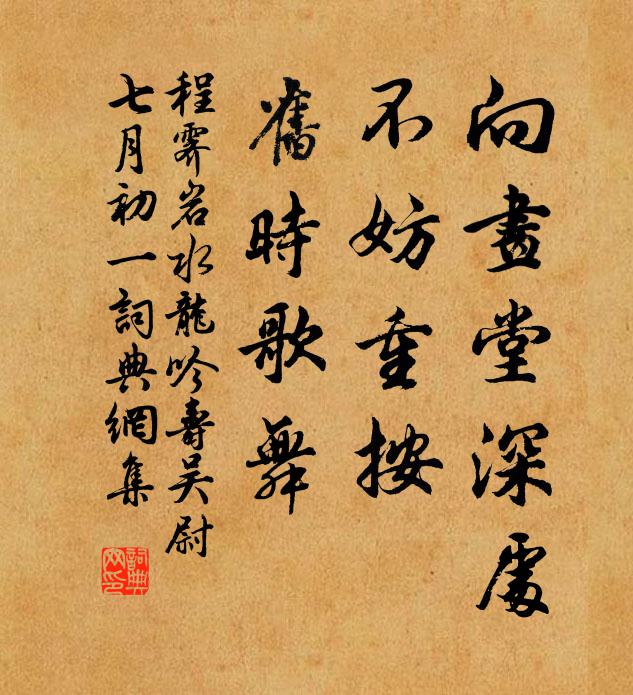 向畫堂深處
不妨重按
舊時歌舞
程霽岩水龍吟壽吳尉
七月初一詞典網集
詞典
網印